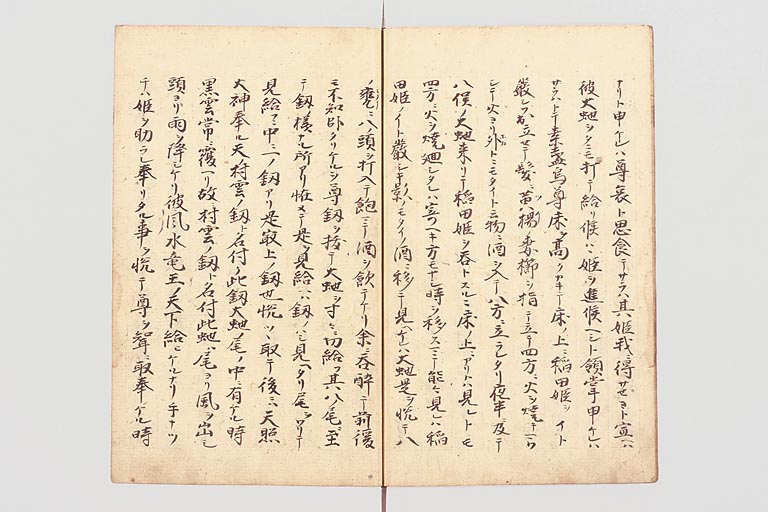 ナリト申ケレハ尊哀ト思食テサラハ其ノ姫我ニ得サセヨト宣ハ
彼大虵ヲタニモ打テ給リ候ハヽ姫ヲ進候ヘシト領掌申ケレハ
サラハトテ素盞烏尊床ヲ高クカキテ床ノ上ニ稲田姫ヲイト
厳シク出立セテ髪ニ黄楊ノ妻櫛ヲ指テ立テ四方ニ火ヲ焼
シテ火ヨリ外トニモタイト云物ニ酒ヲ入テ八方ニ立ラレタリ夜半及テ
八俣ノ大虵来リテ稲田姫ヲ呑トスルニ床ノ上ニアリトハ見レトモ
四方ニ火ヲ焼廻シタレハ寄ヘキ方モナシ時ヲ移スニテ能々見レハ稲
田姫ノイト厳シキ影ノモタイノ酒ニ移テ見ヘケレハ大虵是ヲ悦テ八
ノ甕ニ八ノ頭ヲ打入テ飽マテ酒ヲ飲テケリ余ニ呑酔テ前後
モ不知臥タリケルヲ尊釼ヲ抜テ大虵ヲ寸々ニ切給フ其ノ八尾ニ至
テ釼様ナル所アリ恠メテ是ヲ見給ヘハ釼ノハシ見ヘタリ尾ヲワリテ
見給フニ中ニ一ノ釼アリ是最上ノ釼也悦ツヽ取テ後ニハ天照
大神奉ル天村雲ノ釼ト名付ク此釼大虵ノ尾ノ中ニ有ケル時
黒雲常ニ覆ヘリ故村雲ノ釼ト名付此虵ハ尾ヨリ風ヲ出シ
頭ヨリ雨ヲ降ケリ彼風水竜王ノ天下給ヒケルナリテナツ
チハ姫ヲ助ラレ奉リタル事ヲ悦テ尊ヲ聟ニ取奉ケル時